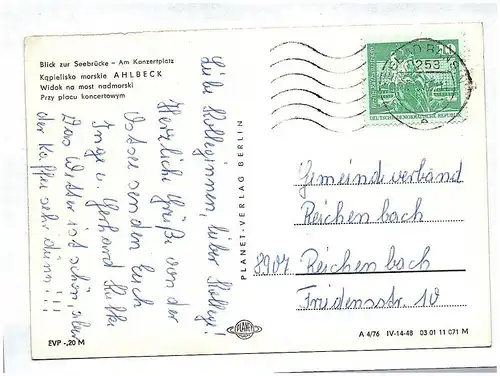 Blick zur Seebrücke - Am Konzertplatz
Kąpielisko morskie AHLBECK
Widok na most nadmorski
Przy placu koncertowym
Liebe Kolleginnen, lieber Kollege!
Herzliche Grüße von der
Ostsee senden Euch
Inge u. Gerhard
Das Wetter ist schön aber
der Kaffee sehr dünn!!!
EVP -,20 M
PLANET-VERLAG BERLIN
PLANET
DEUTSCHE DEMOKRATISCHE REPUBLIK
Gemeindeverband
Reichenbach
8907 Reichenbach
Friedensstr. 10
A 4/76 IV-14-48 03 01 11 071 M